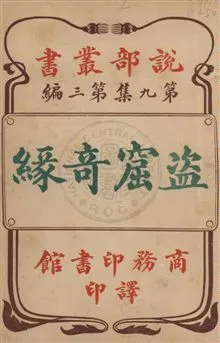 書叢部說
編三第集九第
緣奇窟盜
館書印務商
印譯